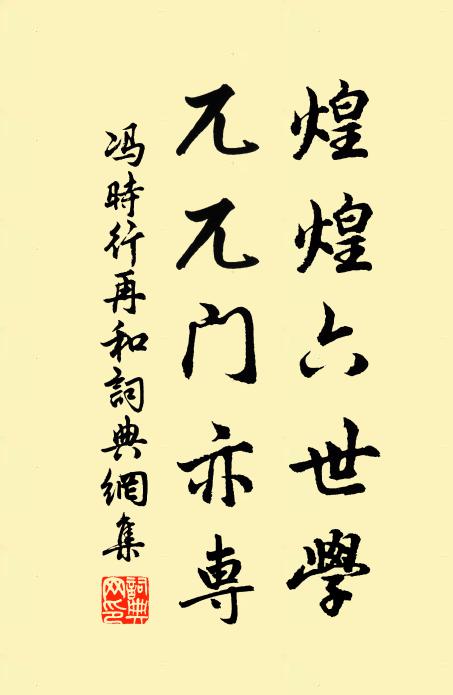 煌煌六世學
兀兀门亦専
冯時行再和詞典網集
詞典
网印